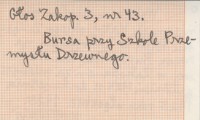 Głos Zakop. 3, nr 43.
Bursa przy Szkole Prze-
mysłu Drzewnego.